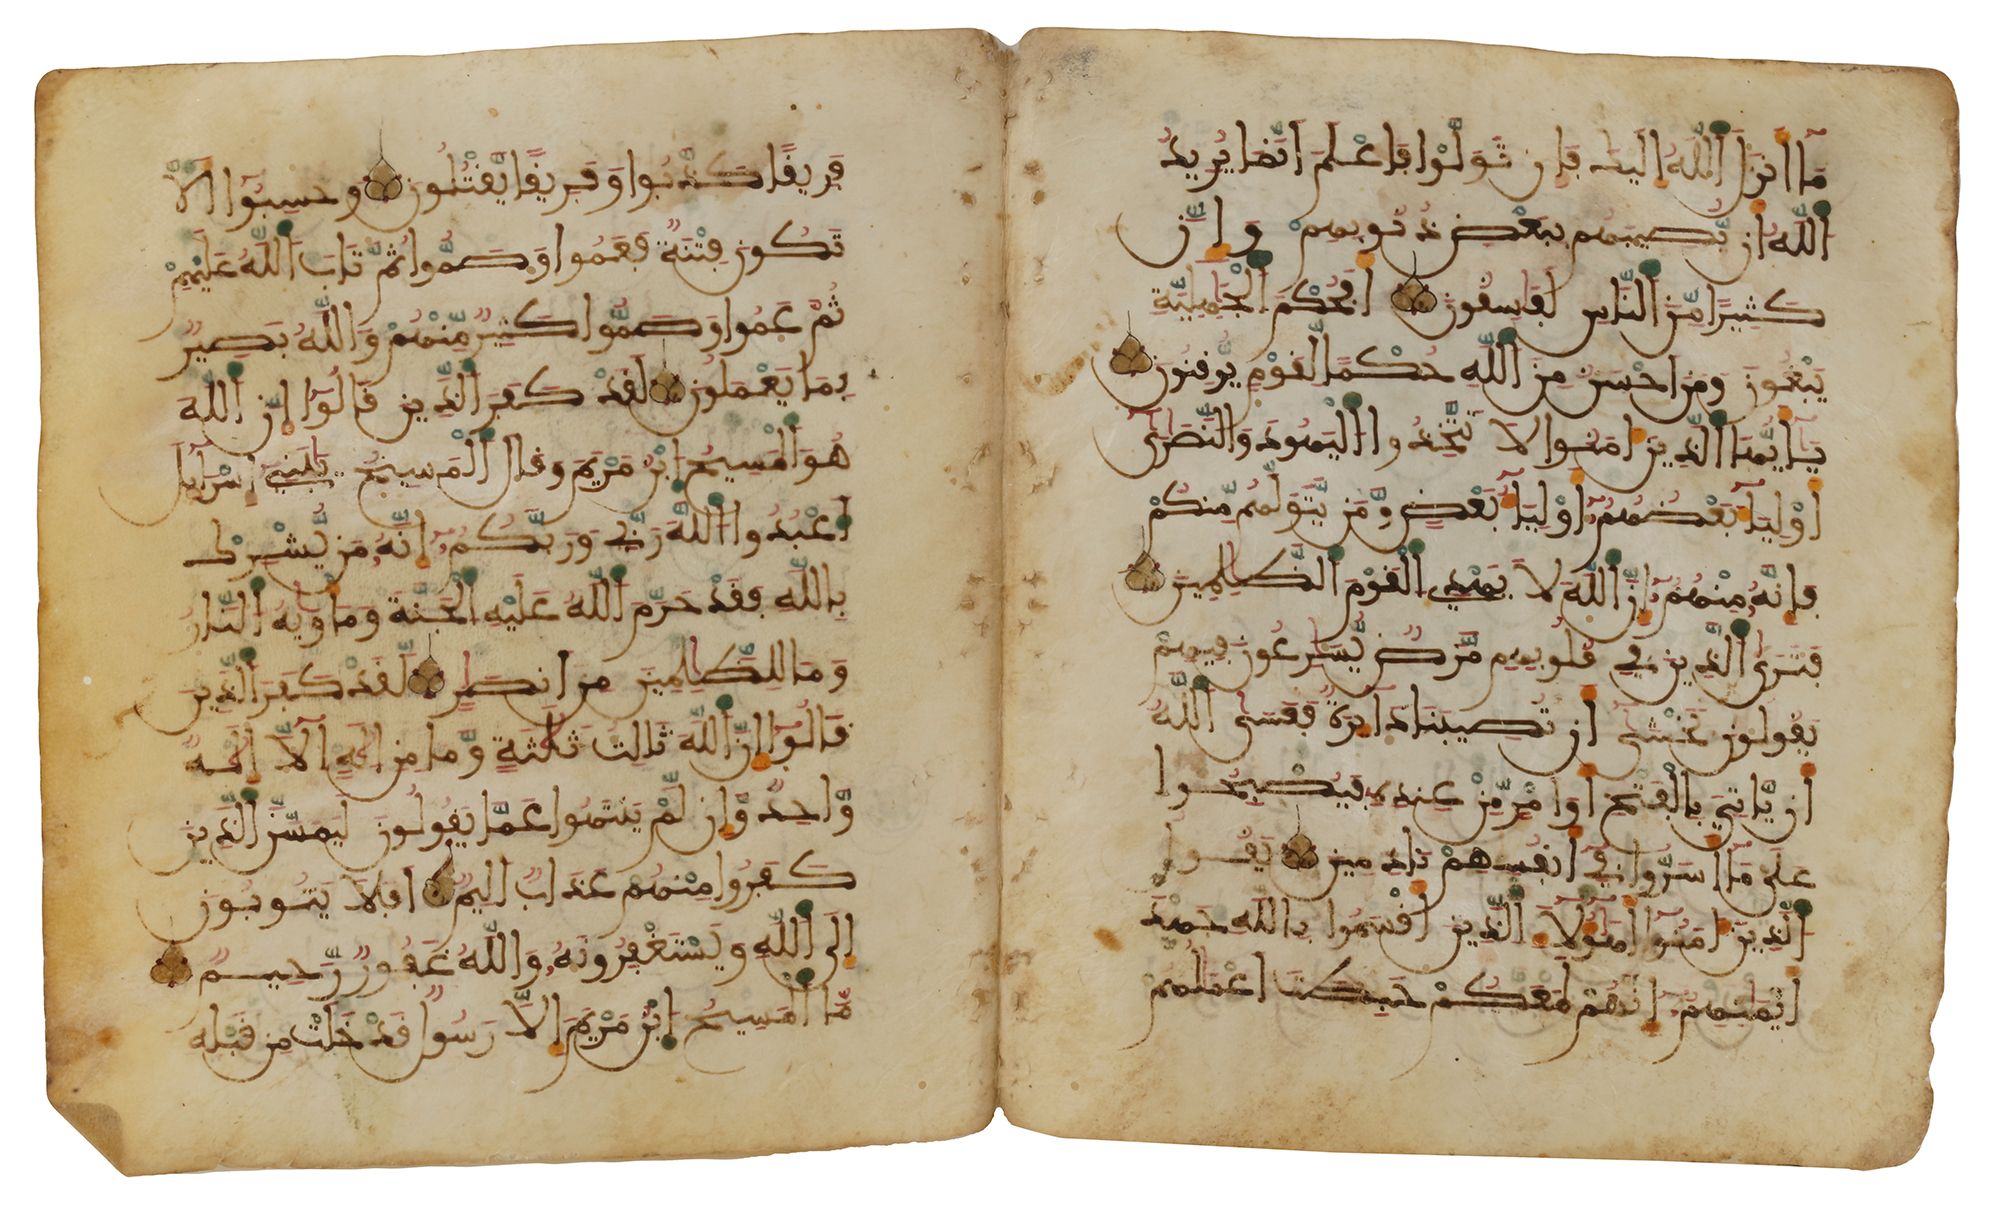 مَآ أَنزَلَ ٱللَّهُ إِلَيْكَ فَإِن تَوَلَّوْا فَٱعْلَمَ ٱنَّمَا يُرِيدُ
ٱللَّهُ أَنْ يُّصِيبَهُم بِبَعْضِ ذُنُوبِهِمْ وَإِنَّ
كَثِيرًا مِّنَ ٱلنَّاسِ لَفَٰسِقُونَ أَفَحُكْمَ ٱلْجَٰهِلِيَّةِ
يَبْغُونَ وَمَنَ أَحْسَنُ مِنَ ٱللَّهِ حُكْمًا لِّقَوْمٍ يُوقِنُونَ
يَٰٓأَيُّهَا ٱلَّذِينَ ءَامَنُوا لَا تَتَّخِذُوا ٱلْيَهُودَ وَٱلنَّصَٰرَىٰٓ
أَوْلِيَآءَ بَعْضُهُمُۥٓ أَوْلِيَآءُ بَعْضٍ وَمَنْ يَّتَوَلَّهُم مِّنكُمْ
فَإِنَّهُۥ مِنْهُمُۥٓ إِنَّ ٱللَّهَ لَا يَهْدِى ٱلْقَوْمَ ٱلظَّٰلِمِينَ
فَتَرَى ٱلَّذِينَ فِى قُلُوبِهِم مَّرَضٌ يُسَٰرِعُونَ فِيهِمْ
يَقُولُونَ نَخْشَىٰٓ أَن تُصِيبَنَا دَآئِرَةٌ فَعَسَى ٱللَّهُ
أَنْ يَّاتِىَ بِٱلْفَتْحِ أَوَ امْرٍ مِّنْ عِندِهِۦ فَيُصْبِحُوا
عَلَىٰ مَآ أَسَرُّوا فِىٓ أَنفُسِهِمْ نَٰدِمِينَ يَقُولُ
ٱلَّذِينَ ءَامَنُوٓا أَهَٰٓؤُلَآءِ ٱلَّذِينَ أَقْسَمُوا بِٱللَّهِ جَهْدَ
أَيْمَٰنِهِمُۥٓ إِنَّهُمْ لَمَعَكُمْ حَبِطَتَ أَعْمَٰلُهُمْ
فَرِيقًا كَذَّبُوا وَفَرِيقًا يَّقْتُلُونَ وَحَسِبُوٓا أَلَّا
تَكُونَ فِتْنَةٌ فَعَمُوا وَصَمُّوا ثُمَّ تَابَ ٱللَّهُ عَلَيْهِمْ
ثُمَّ عَمُوا وَصَمُّوا كَثِيرٌ مِّنْهُمْ وَٱللَّهُ بَصِيرٌ
بِمَا يَعْمَلُونَ لَقَدْ كَفَرَ ٱلَّذِينَ قَالُوٓا إِنَّ ٱللَّهَ
هُوَ ٱلْمَسِيحُ ٱبْنُ مَرْيَمَ وَقَالَ ٱلْمَسِيحُ يَٰبَنِىٓ إِسْرَٰٓءِيلَ
ٱعْبُدُوا ٱللَّهَ رَبِّى وَرَبَّكُمُۥٓ إِنَّهُۥ مَنْ يُّشْرِكْ
بِٱللَّهِ فَقَدْ حَرَّمَ ٱللَّهُ عَلَيْهِ ٱلْجَنَّةَ وَمَأْوَىٰهُ ٱلنَّارُ
وَمَا لِلظَّٰلِمِينَ مِنَ أَنصَارٍ لَّقَدْ كَفَرَ ٱلَّذِينَ
قَالُوٓا إِنَّ ٱللَّهَ ثَالِثُ ثَلَٰثَةٍ وَمَا مِنِ إِلَٰهٍ إِلَّآ إِلَٰهٌ
وَٰحِدٌ وَإِن لَّمْ يَنتَهُوا عَمَّا يَقُولُونَ لَيَمَسَّنَّ ٱلَّذِينَ
كَفَرُوا مِنْهُمْ عَذَابٌ أَلِيمٌ أَفَلَا يَتُوبُونَ
إِلَى ٱللَّهِ وَيَسْتَغْفِرُونَهُۥ وَٱللَّهُ غَفُورٌ رَّحِيمٌ
مَّا ٱلْمَسِيحُ ٱبْنُ مَرْيَمَ إِلَّا رَسُولٌ قَدْ خَلَتْ مِن قَبْلِهِ